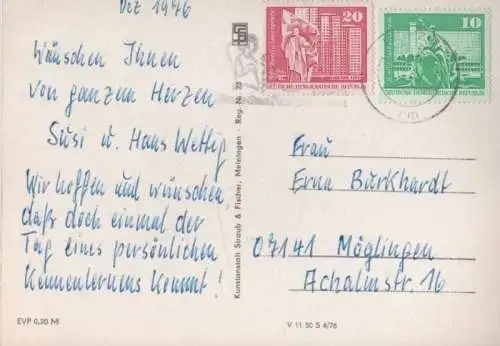 Dez 1976
Wünschen Ihnen
von ganzem Herzen
Susi u. Hans Wettig
Wir hoffen und wünschen,
daß doch einmal der
Tag eines persönlichen
Kennenlernens kommt!
EVP 0,20 M
Kunstanstalt Straub & Fischer, Meiningen · Reg.-Nr. 23
V 11 50 S 4/76
20
DEUTSCHE DEMOKRATISCHE REPUBLIK
10
DEUTSCHE DEMOKRATISCHE REPUBLIK
Frau
Erna Burkhardt
07141 Möglingen
Achalmstr. 16